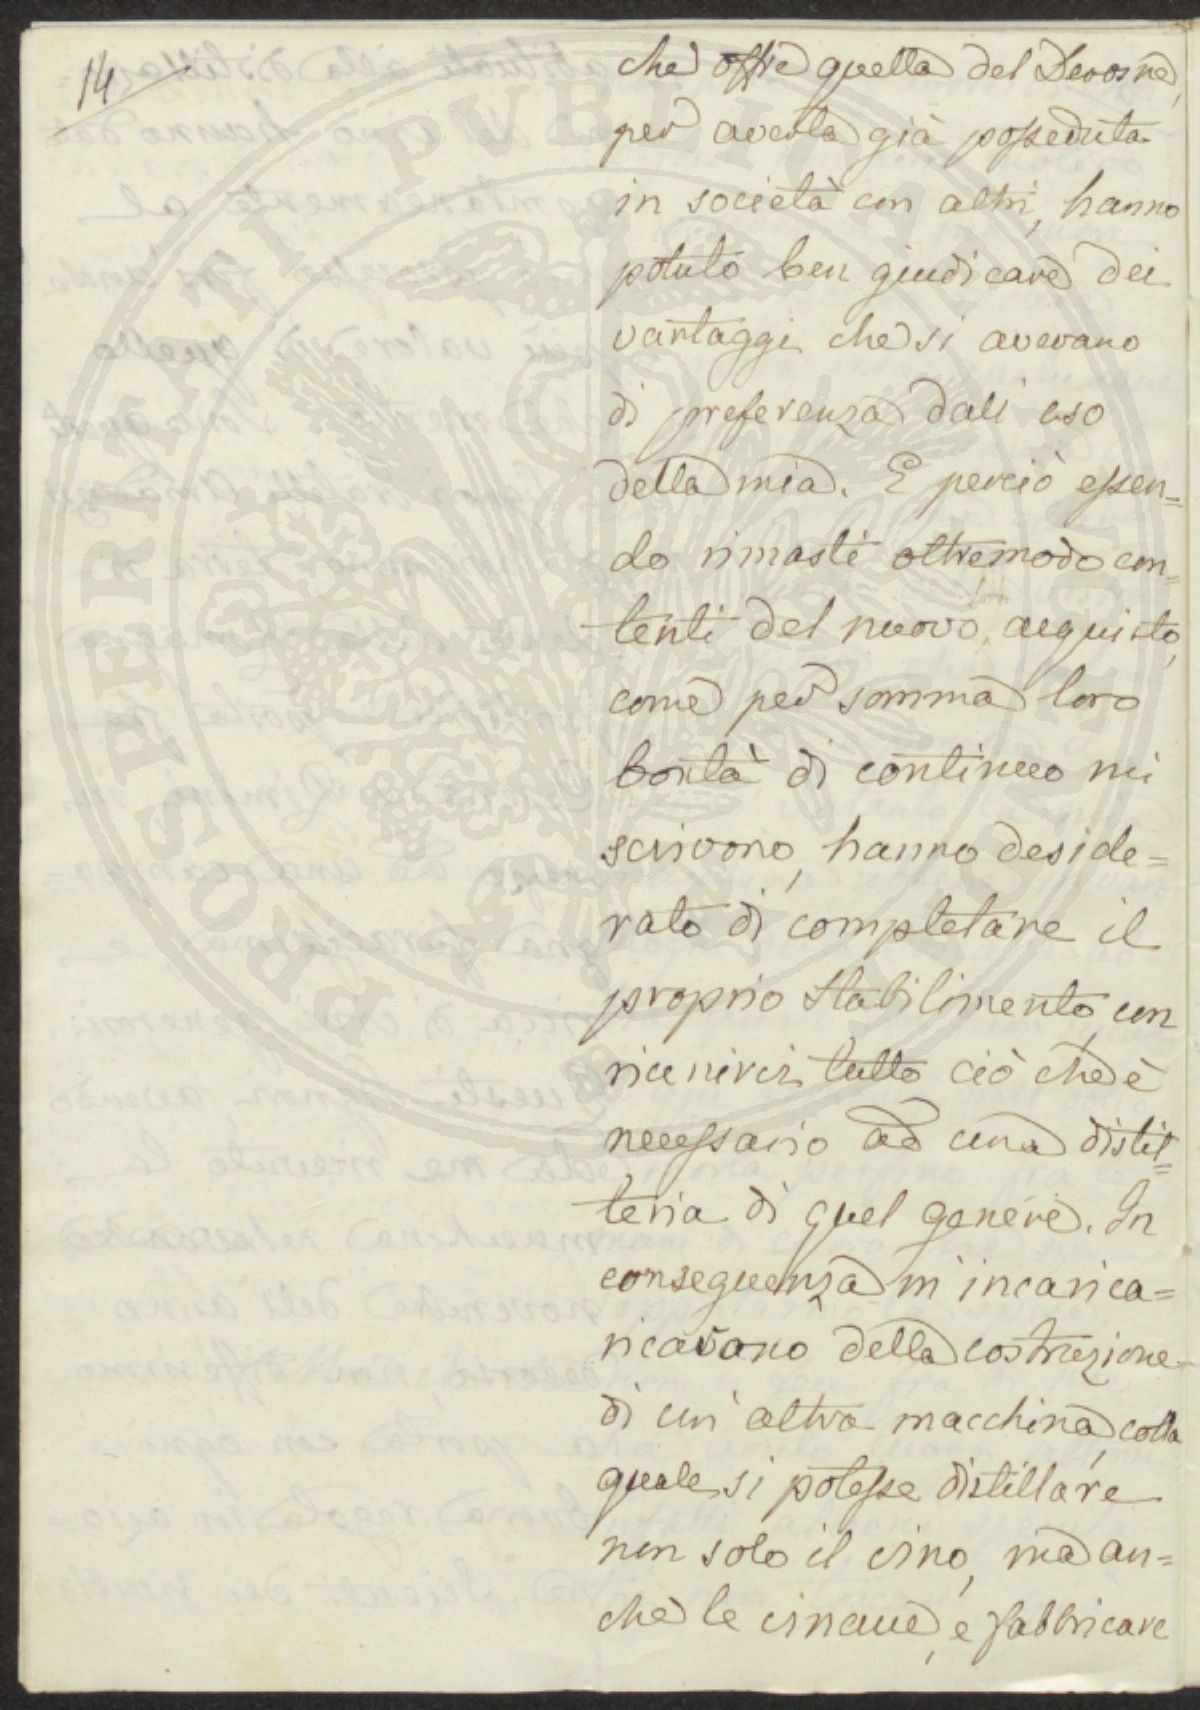 14
che offre quella del Devosne,
per averla già posseduta
in società con altri, hanno
potuto ben giudicare dei
vantaggi che si avevano
di preferenza dall uso
della mia. E perciò essen=
do rimasti oltremodo con=
tenti del nuovo acquisto,
come per somma loro
bontà di continuo mi
scrivono, hanno deside=
rato di completare il
proprio Stabilimento, con
riunirvi tutto ciò che è
necessario ad una distil=
leria di quel genere. In
conseguenza m'incarica=
ricavano della costruzione
di un'altra macchina, colla
quale si potesse distillare
non solo il vino, ma an=
che le vinacce, e fabbricare
PROSPERITATI PUBLICAE AUGENDAE